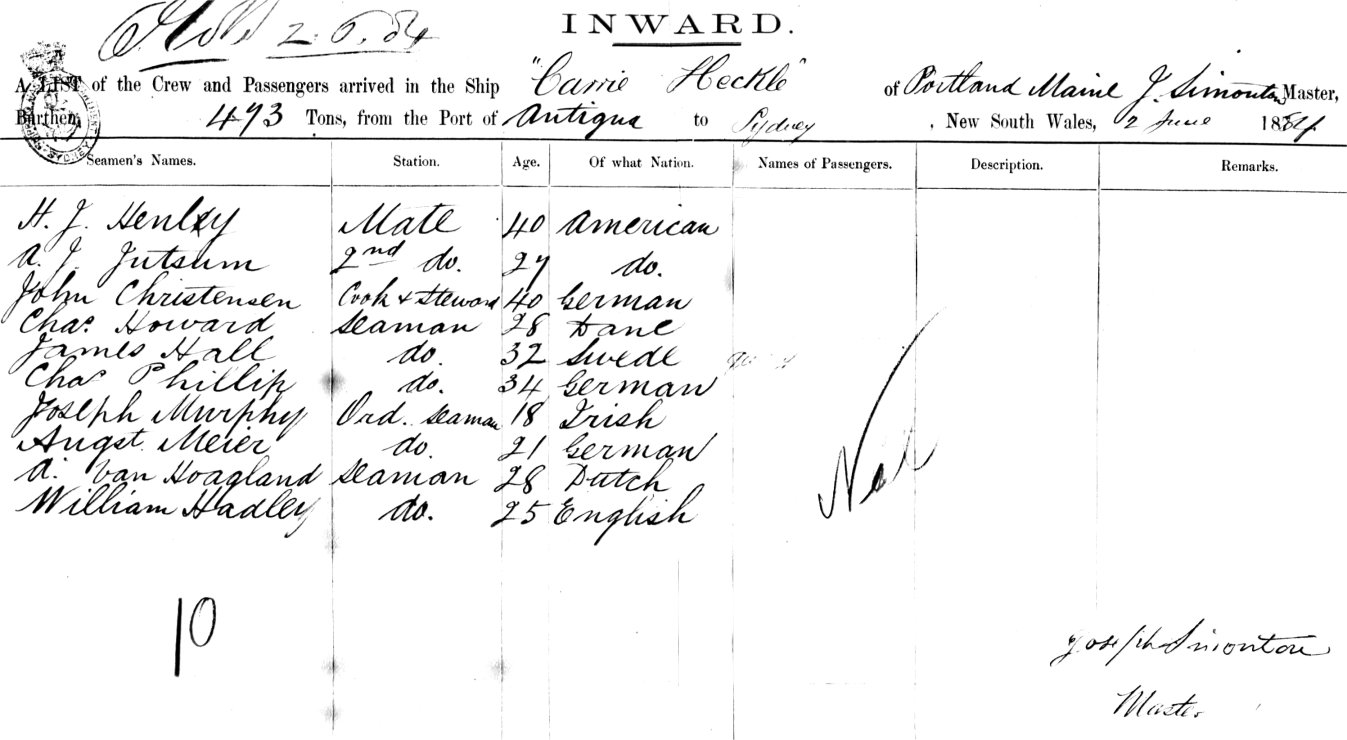 INWARD.
2.6.84
A LIST of the Crew and Passengers arrived in the Ship "Carrie Heckle" of Portland Maine J. Simonton Master,
Burthen 493 Tons, from the Port of Antigua to Sydney, New South Wales, 2 June 1884
Seamen's Names. Station. Age. Of what Nation. Names of Passengers. Description. Remarks.
H. J. Henley Mate 40 American
A. J. Jutsum 2nd do. 27 do.
John Christensen Cook & Steward 40 German
Chas. Howard Seaman 28 Dane
James Hall do. 32 Swede
Chas Phillip do. 34 German
Joseph Murphy Ord. Seaman 18 Irish
Augst. Meier do. 21 German
A. Van Hoagland Seaman 28 Dutch
William Hadley do. 25 English
Nil
10
Joseph Simonton
Master